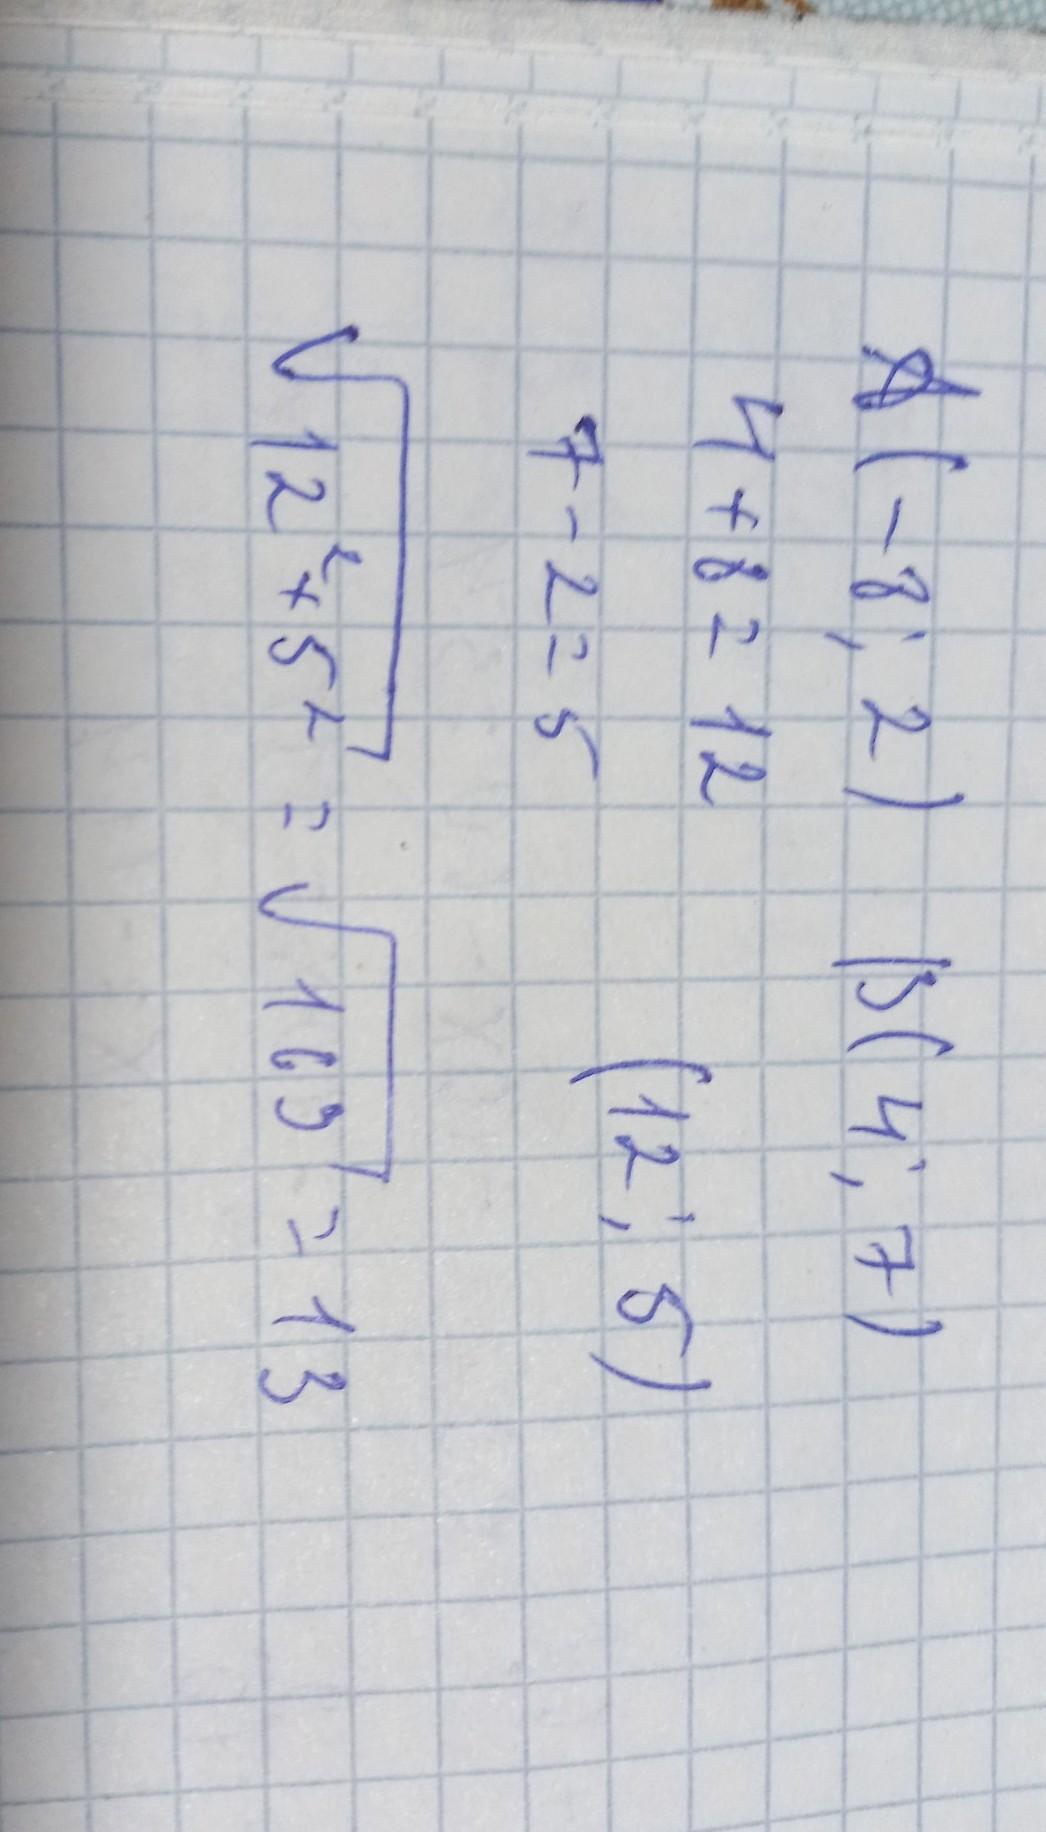 A(-8; 2) B(4; 7)
4+8=12
7-2=5 (12; 5)
√12²+5² = √169 = 13